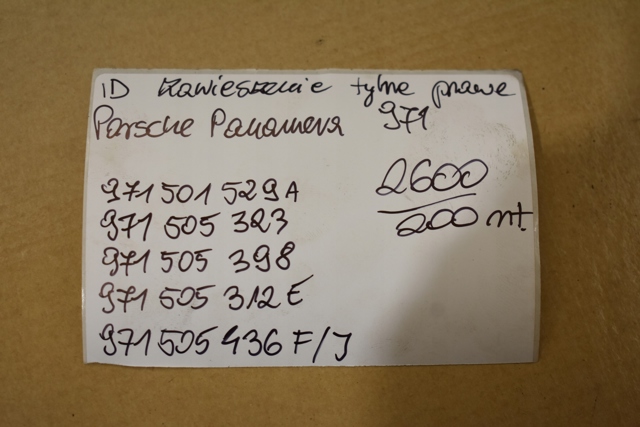 ID Zawieszenie tylne prawe
Porsche Panamera 971
971 501 529 A
2600
971 505 323
200 nt.
971 505 398
971 505 312 E
971 505 436 F/J